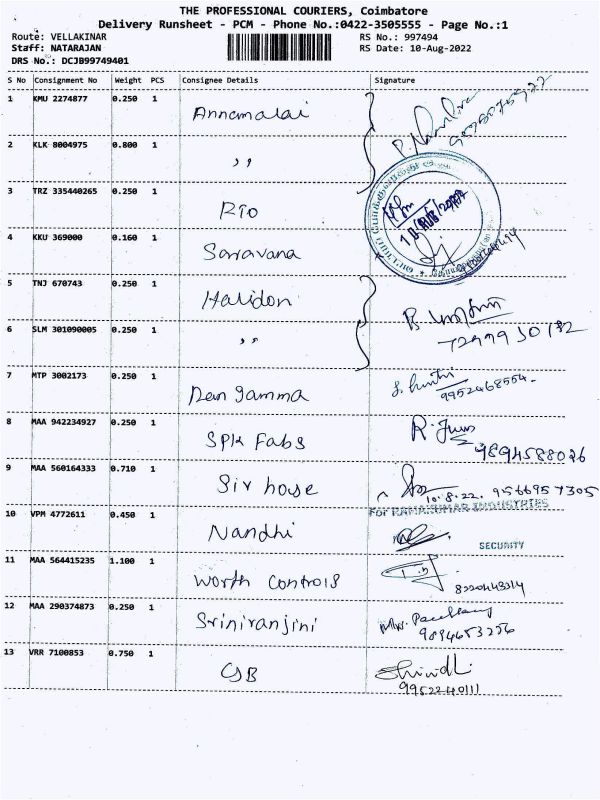 THE PROFESSIONAL COURIERS, Coimbatore
Delivery Runsheet - PCM - Phone No.:0422-3505555 - Page No.:1
Route: VELLAKINAR RS No.: 997494
Staff: NATARAJAN RS Date: 10-Aug-2022
DRS No.: DCJB99749401
S No Consignment No Weight PCS Consignee Details Signature
1 KMU 2274877 0.250 1 Annamalai
2 KLK 8004975 0.800 1 ,,
3 TRZ 335440265 0.250 1 RTO
4 KKU 369000 0.160 1 Saravana
5 TNJ 670743 0.250 1 Halidon
6 SLM 301090005 0.250 1 ,,
7 MTP 3002173 0.250 1 9952468554
8 MAA 942234927 0.250 1 SPK Fabs 9894588026
9 MAA 560164333 0.710 1 Sir house 10.8.22. 9566957305
For RAMKUMAR INDUSTRIES
10 VPM 4772611 0.450 1 Nandhi SECURITY
11 MAA 564415235 1.100 1 Worth Controls
12 MAA 290374873 0.250 1 Sriniranjini
13 VRR 7100853 0.750 1 9952240111